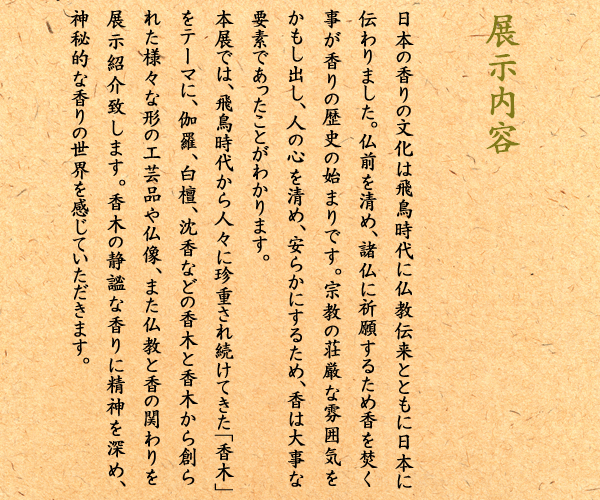 展示内容
日本の香りの文化は飛鳥時代に仏教伝来とともに日本に
伝わりました。仏前を清め、諸仏に祈願するため香を焚く
事が香りの歴史の始まりです。宗教の荘厳な雰囲気を
かもし出し、人の心を清め、安らかにするため、香は大事な
要素であったことがわかります。
本展では、飛鳥時代から人々に珍重され続けてきた「香木」
をテーマに、伽羅、白檀、沈香などの香木と香木から創ら
れた様々な形の工芸品や仏像、また仏教と香の関わりを
展示紹介致します。香木の静謐な香りに精神を深め、
神秘的な香りの世界を感じていただきます。